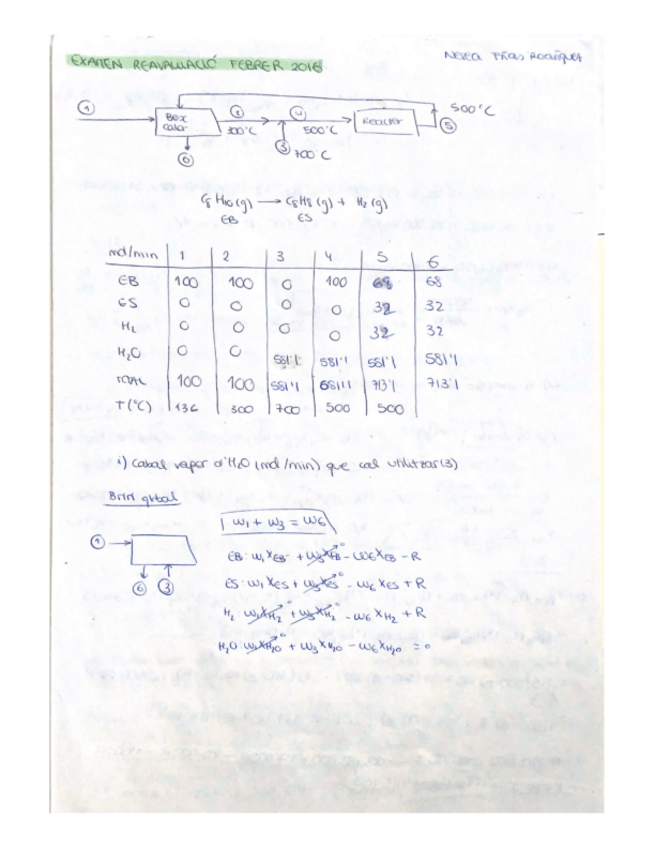 EXAMEN REAVALUACIÓ FEBRER 2016
1
Bex calor
2
300°C
4
500°C
3
700°C
Reactor
5
500°C
6
C8H10(g) → C8H8(g) + H2(g)
EB ES
mol/min 1 2 3 4 5 6
EB 100 100 0 100 68 68
ES 0 0 0 0 32 32
H2 0 0 0 0 32 32
H2O 0 0 581'1 581'1 581'1 581'1
TOTAL 100 100 581'1 681'1 713'1 713'1
T(°C) 136 300 700 500 500
i) Cabal vapor d'H2O (mol/min) que cal utilitzar (3)
BM global
W1 + W3 = W6
1
6 3
EB: W1XEB + W3XEB⁰ - W6XEB - R
ES: W1XES + W3XES⁰ - W6XES + R
H2: W1XH2⁰ + W3XH2⁰ - W6XH2 + R
H2O: W1XH2O⁰ + W3XH2O - W6XH2O = 0